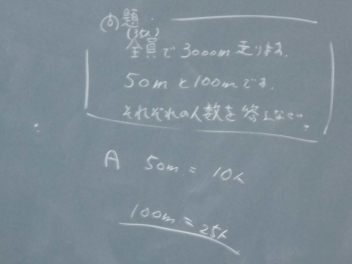 問題
(35人)
全員で3000m走ります。
50mと100mです。
それぞれの人数を答えなさい。
A 50m = 10人
100m = 25人